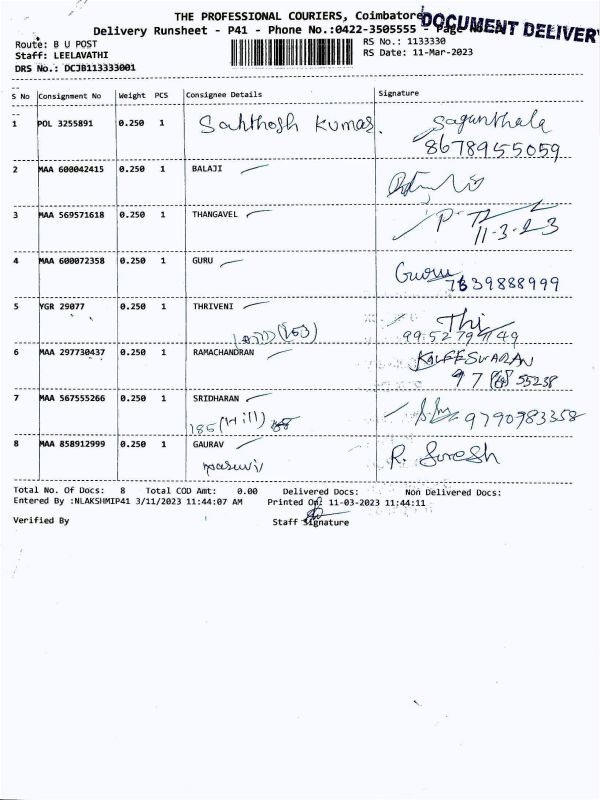 THE PROFESSIONAL COURIERS, Coimbatore
DOCUMENT DELIVER
Delivery Runsheet - P41 - Phone No.:0422-3505555 - Page
Route: B U POST
RS No.: 1133330
Staff: LEELAVATHI
RS Date: 11-Mar-2023
DRS No.: DCJB113333001
S No Consignment No Weight PCS Consignee Details Signature
1 POL 3255891 0.250 1 Sahthosh Kumar.
8678955059
2 MAA 600042415 0.250 1 BALAJI
3 MAA 569571618 0.250 1 THANGAVEL
11-3-23
4 MAA 600072358 0.250 1 GURU Guru
5 YGR 29077 0.250 1 THRIVENI
6 MAA 297730437 0.250 1 RAMACHANDRAN
7 MAA 567555266 0.250 1 SRIDHARAN
185 (Hill) 9790983358
8 MAA 858912999 0.250 1 GAURAV
R. Suresh
Total No. Of Docs: 8 Total COD Amt: 0.00 Delivered Docs: Non Delivered Docs:
Entered By :NLAKSHMIP41 3/11/2023 11:44:07 AM Printed On: 11-03-2023 11:44:11
Verified By Staff Signature